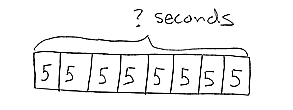 ? seconds
5 5 5 5 5 5 5 5